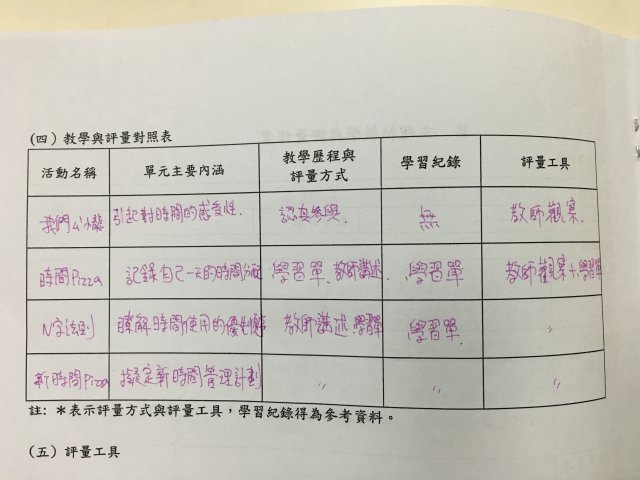 (四) 教學與評量對照表
活動名稱 單元主要內涵 教學歷程與評量方式 學習紀錄 評量工具
引起對時間的感受性. 認真參與. 無 教師觀察.
時間Pizza 記錄自己一天的時間分配 學習單、教師講述. 學習單 教師觀察+學習單
N字法則 瞭解時間使用的優先順序 教師講述.學習單 學習單. 〃
新時間Pizza 擬定新時間管理計劃 〃 〃 〃
註: *表示評量方式與評量工具,學習紀錄得為參考資料。
(五) 評量工具